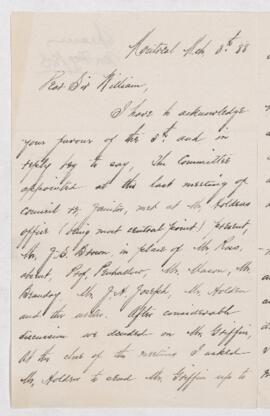 Montreal Mch 8th 88
Dear Sir William,
I have to acknowledge
your favour of the 8th. and in
reply beg to say, The Committee
appointed at the last meeting of
Council re Janitor, met at Mr Holdens
office (being most central point) present,
Mr. J. S. Brown, in place of Mr Ross,
absent, Prof. Penhallow, Mr. Mason, Mr.
Beaudry, Mr. J. H. Joseph, Mr. Holden
and the writer. After considerable
discussion we decided on Mr Griffin,
At the close of the meeting I asked
Mr. Holden to send Mr. Griffin up to